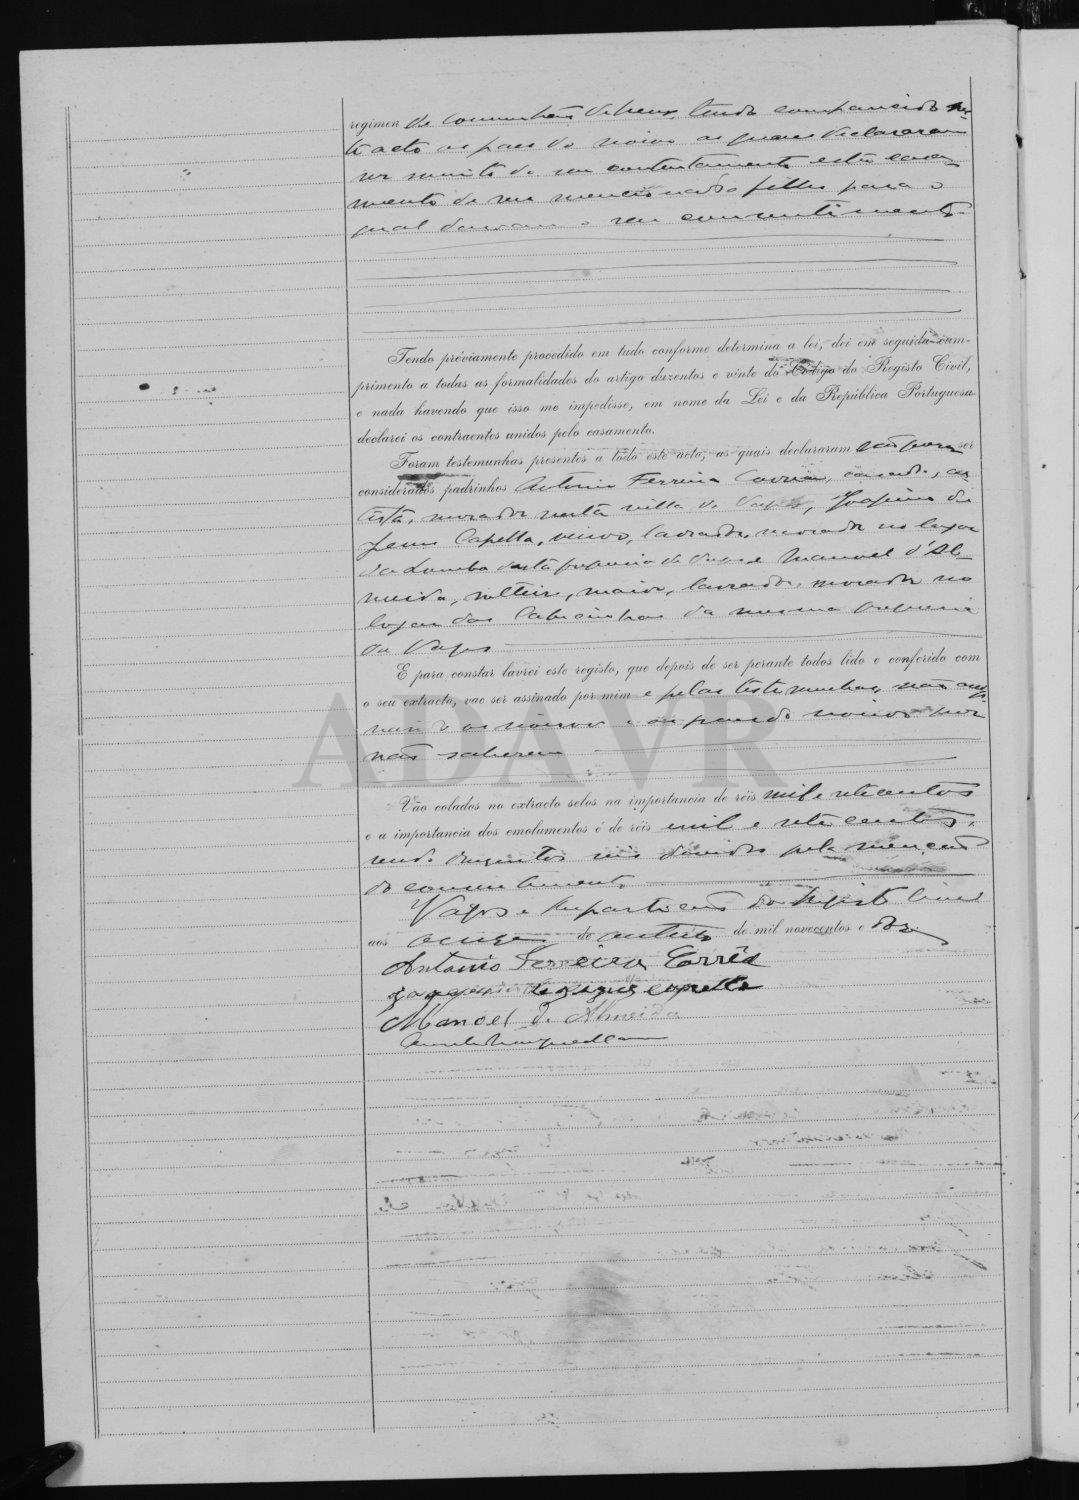 regimen de communhão de bens, tendo comparecido nes-
te acto os paes do noivo os quaes declararam
ser muito de seu contentamento este casa-
mento de seu mencionado filho para o
qual davam o seu consentimento.
Tendo préviamente procedido em tudo conforme determina a lei, dei em seguida cum-
primento a todas as formalidades do artigo duzentos e vinte do Código do Registo Civil,
e nada havendo que isso me impedisse, em nome da Lei e da República Portuguesa
declarei os contraentes unidos pelo casamento.
Foram testemunhas presentes a todo este acto, as quais declararam não para ser
considerados padrinhos Antonio Ferreira Corrêa, casado, ar-
tista, morador nesta villa de Vagos, Joaquim de
Jesus Capella, viuvo, lavrador, morador no logar
da Lomba desta freguesia de Vagos e Manuel d'Al-
meida, solteiro, maior, lavrador, morador no
logar das da mesma freguesia
de Vagos
E para constar lavrei este registo, que depois de ser perante todos lido e conferido com
o seu extracto, vae ser assinado por mim e pelas testemunhas, não assi-
nando os noivos e os paes do noivo por
não saberem
Vão colados no extracto selos na importancia de réis mil e setecentos
e a importancia dos emolumentos é de réis mil e sete centos,
sendo duzentos reis devidos pela menção
do consentimento.
Vagos e Repartição do Registo Civil
aos onze de outubro de mil novecentos e
Antonio Ferreira Corrêa
Joaquim de Jezus Capella
Manoel de Almeida
ADAVR